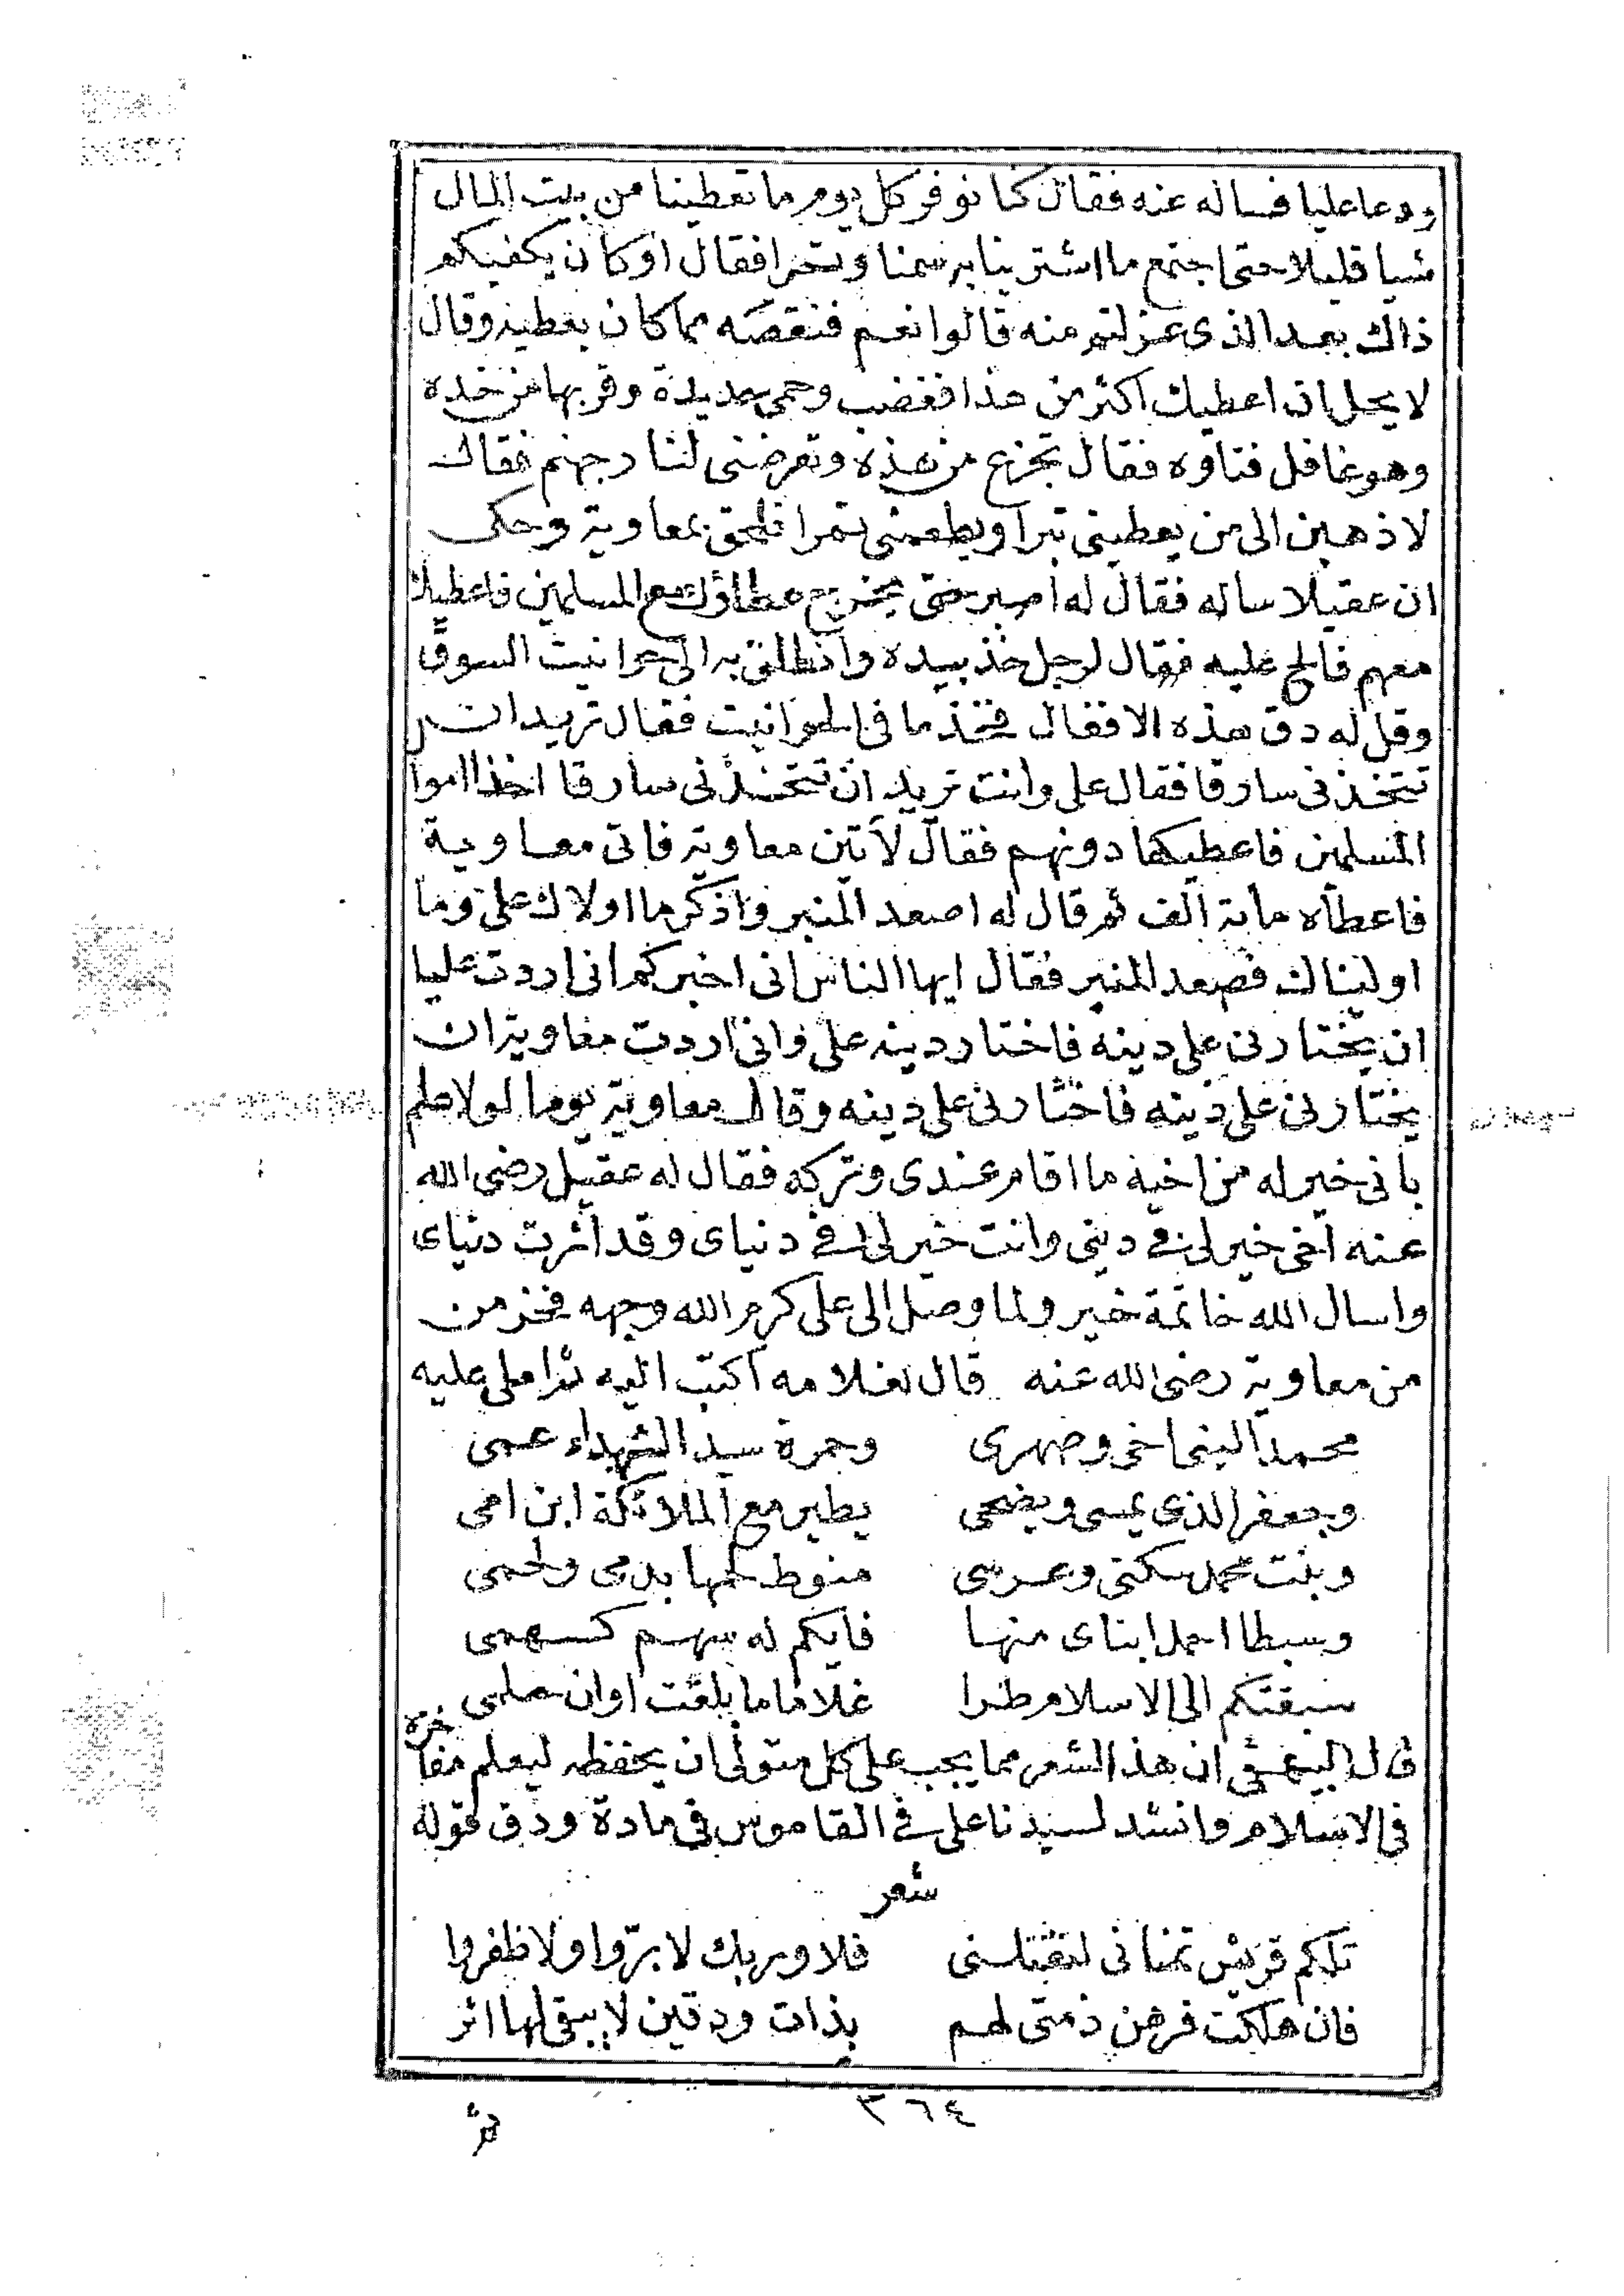 ودعا عليا فساله عنه فقال كنا نوفر كل يوم ما تعطينا من بيت المال
شيا قليلا حتى اجتمع ما اشترينا به سمنا وتمرا فقال او كان يكفيكم
ذاك بعد الذى عزلتم منه قالوا نعم فنقصه مما كان يعطيه وقال
لا يحل ان اعطيك اكثر من هذا فغضب وحمى حديدة وقربها من خده
وهو غافل فتاوه فقال تجزع من هذه وتعرضنى لنار جهنم فقال
لاذهبن الى من يعطينى تبرا ويطعمنى تمرا فلحق بمعاوية وحكى
ان عقيلا ساله فقال له اصبر حتى يخرج عطاؤك مع المسلمين فاعطيك
معهم فالح عليه فقال لرجل خذ بيده وانطلق به الى حوانيت السوق
وقل له دق هذه الاقفال فخذ ما فى الحوانيت فقال تريد ان
تتخذنى سارقا فقال على وانت تريد ان تتخذنى سارقا اخذ اموا
المسلمين فاعطيكها دونهم فقال لآتين معاوية فاتى معاوية
فاعطاه ماية الف ثم قال له اصعد المنبر واذكر ما اولاك على وما
اوليناك فصعد المنبر فقال ايها الناس انى اخبركم انى اردت عليا
ان يختارنى على دينه فاختار دينه على وانى اردت معاوية ان
يختارنى على دينه فاختارنى على دينه وقال معاوية يوما لولا علم
بانى خير له من اخيه ما اقام عندى وتركه فقال له عقيل رضى الله
عنه اخى خير لى فى دينى وانت خير لى فى دنياى وقد آثرت دنياى
واسال الله خاتمة خير ولما وصل الى على كرم الله وجهه فخر من
من معاوية رضى الله عنه قال لغلامه اكتب اليه ثم املى عليه
محمد النبى اخى وصهرى وحمزة سيد الشهداء عمى
وجعفر الذى يمسى ويضحى يطير مع الملائكة ابن امى
وبنت محمد سكنى وعرسى منوط لحمها بدمى ولحمى
وسبطا احمد ابناى منها فايكم له سهم كسهمى
سبقتكم الى الاسلام طرا غلاما ما بلغت اوان حلمى
قال البيهقى ان هذا الشعر مما يجب على كل متولى ان يحفظه ليعلم مفاخره
فى الاسلام وانشد لسيدنا على فى القاموس فى مادة ودق قوله
شعر
تلكم قريش تمنانى لتقتلنى فلا وربك لا برّوا ولا ظفروا
فان هلكت فرهن ذمتى لهم بذات ودقين لا يبقى لها اثر
٣٦٤